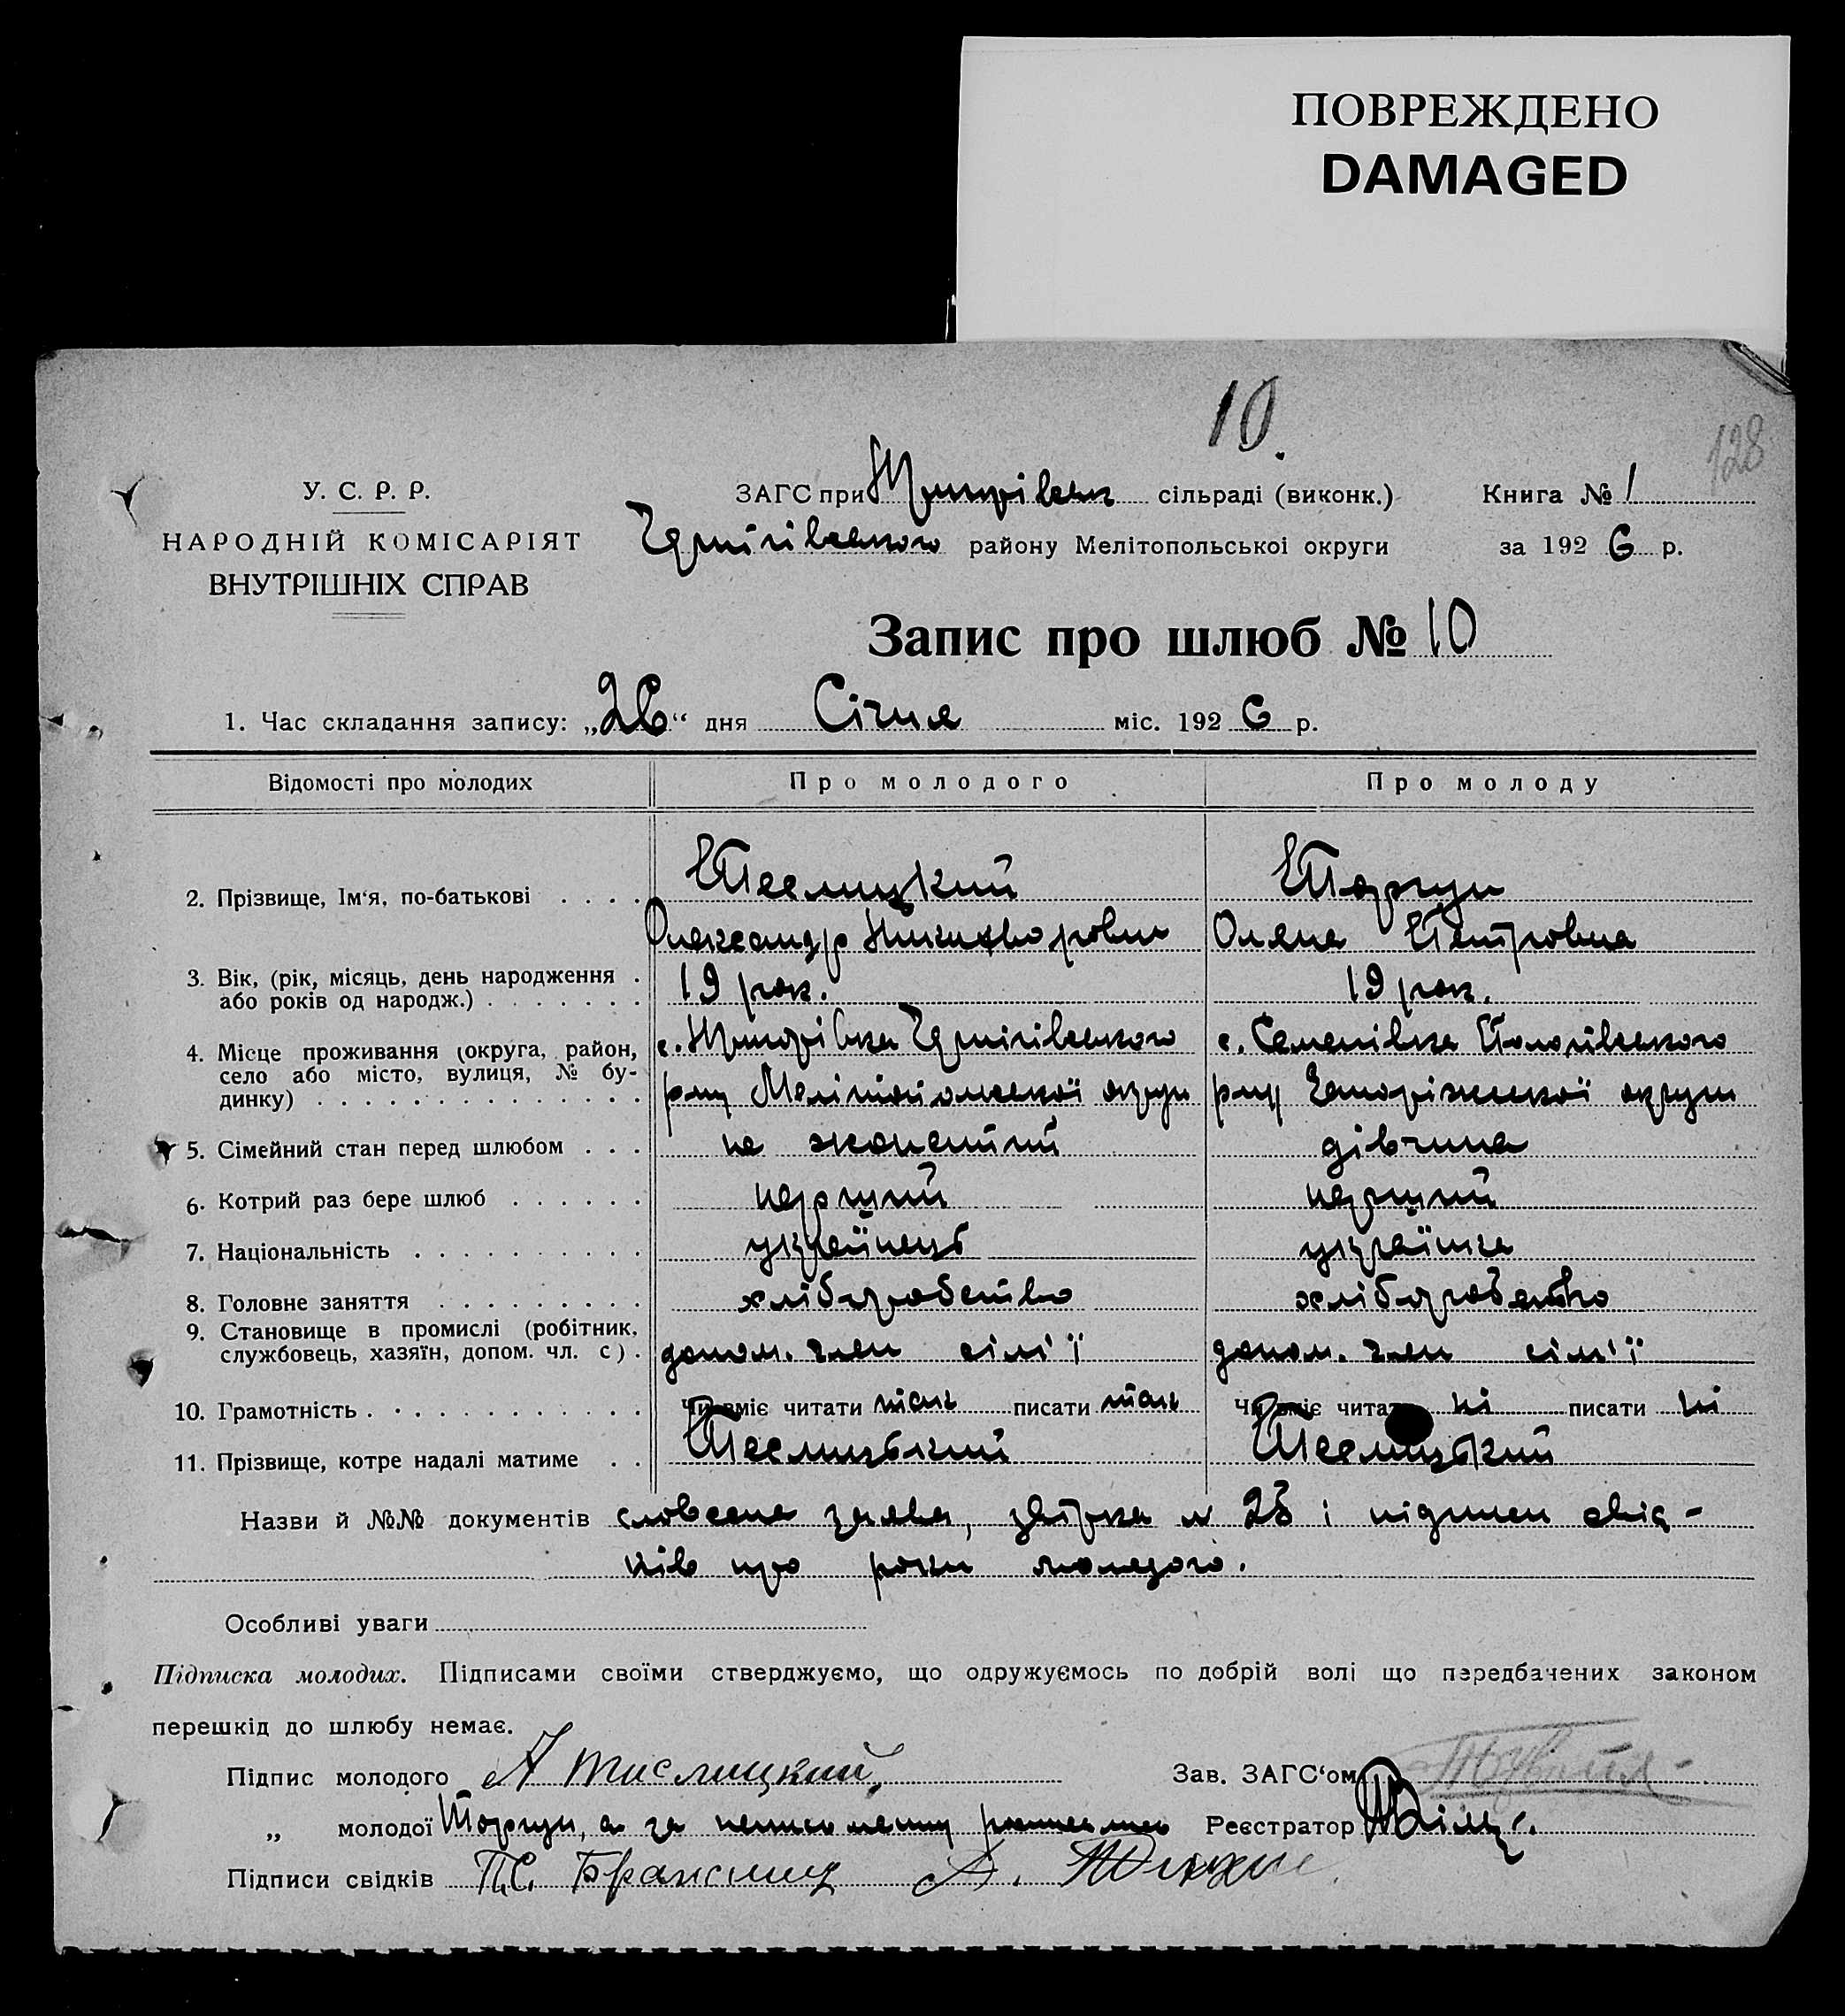 ПОВРЕЖДЕНО
DAMAGED
10.
128
У. С. Р. Р.
НАРОДНІЙ КОМІСАРІЯТ
ВНУТРІШНІХ СПРАВ
ЗАГС при сільраді (виконк.) Книга № 1
Чернігівського району Мелітопольської округи за 1926 р.
Запис про шлюб № 10
1. Час складання запису: „26“ дня Січня міс. 1926 р.
Відомості про молодих Про молодого Про молоду
2. Прізвище, Ім‘я, по-батькові . . . .
Олександр Никифорович Олена Петровна
3. Вік, (рік, місяць, день народження . або років од народж.) . . . . . . . 19 рок. 19 рок.
4. Місце проживання (округа, район, с. Чернігівського с. Семенівка Пологівського
село або місто, вулиця, № бу-
динку) . . . . . . . . . . . . . . р-ну Мелітопольської округи р-ну Запоріжської округи
5. Сімейний стан перед шлюбом . . . не жонатий дівчина
6. Котрий раз бере шлюб . . . . . . перший перший
7. Національність . . . . . . . . . . українець українка
8. Головне заняття . . . . . . . . . хліборобство хліборобство
9. Становище в промислі (робітник,
службовець, хазяїн, допом. чл. с) . допом. член сім'ї допом. член сім'ї
10. Грамотність . . . . . . . . . . . . Чи вміє читати так писати так Чи вміє читати ні писати ні
11. Прізвище, котре надалі матиме . . Теслицький Теслицький
Назви й №№ документів словесна заява, звірка № 25 і підписи свід-
ків про роки молодого.
Особливі уваги
Підписка молодих. Підписами своїми стверджуємо, що одружуємось по добрій волі що передбачених законом
перешкід до шлюбу немає.
Підпис молодого А Тислицкий Зав. ЗАГС‘ом
„ молодої Торгун, а за неписьменну Реєстратор
Підписи свідків П.С.